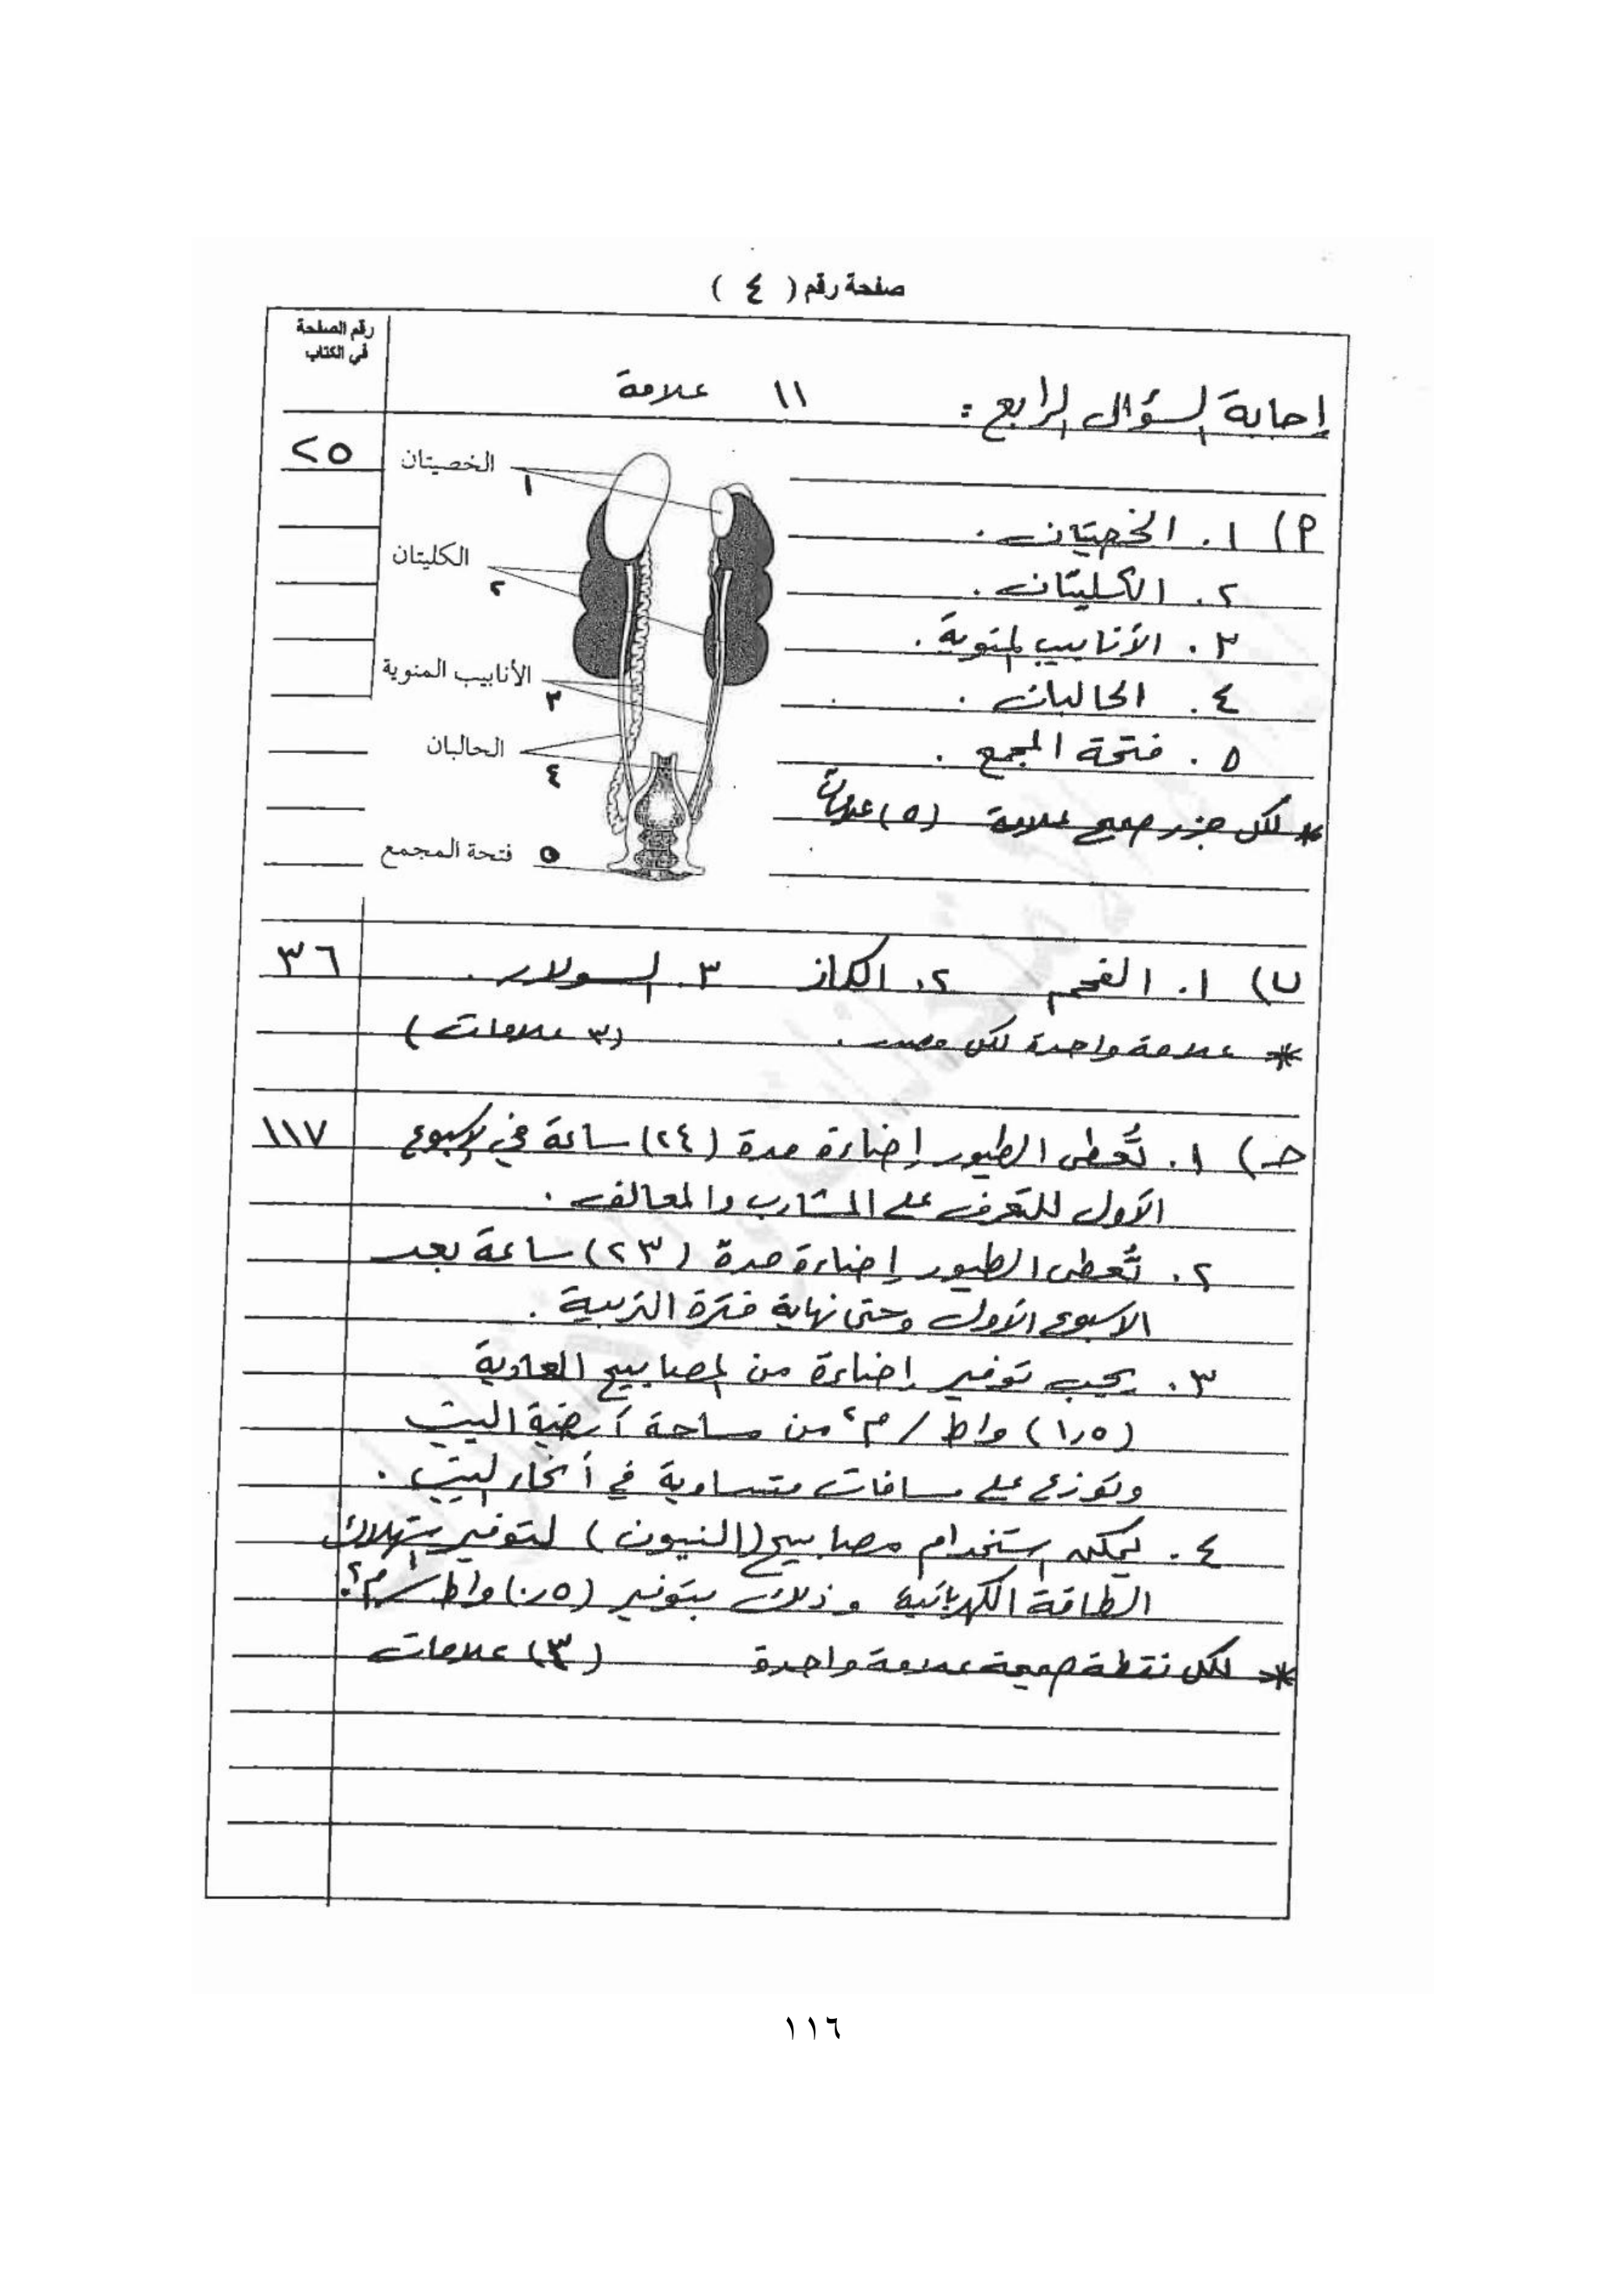 صفحة رقم ( ٤ )
رقم الصفحة
في الكتاب
إجابة السؤال الرابع : ١١ علامة
٢٥
الخصيتان
١
الكليتان
٢
الأنابيب المنوية
٣
الحالبان
٤
فتحة المجمع ٥
٩) ١. الخصيتان .
٢. الكليتان .
٣. الأنابيب المنوية .
٤. الحالبان .
٥. فتحة المجمع .
* لكل جزء صحيح علامة (٥) علامات
ب) ١. الفحم ٢. الكاز ٣. السولار . ٣٦
* علامة واحدة لكل مصدر . (٣ علامات)
جـ) ١. تُعطى الطيور إضاءة مدة (٢٤) ساعة في الاسبوع ١١٧
الأول للتعرف على المشارب والمعالف .
٢. تُعطى الطيور إضاءة مدة (٢٣) ساعة بعد
الاسبوع الأول وحتى نهاية فترة التربية .
٣. يجب توفير إضاءة من المصابيح العادية
(١,٥) واط / م٢ من مساحة أرضية البيت
وتوزع على مسافات متساوية في أنحاء البيت .
٤. يمكن استخدام مصابيح (النيون) لتوفير استهلاك
الطاقة الكهربائية وذلك بتوفير (٠,٥) واط / م٢.
* لكل نقطة صحيحة علامة واحدة (٣) علامات
١١٦